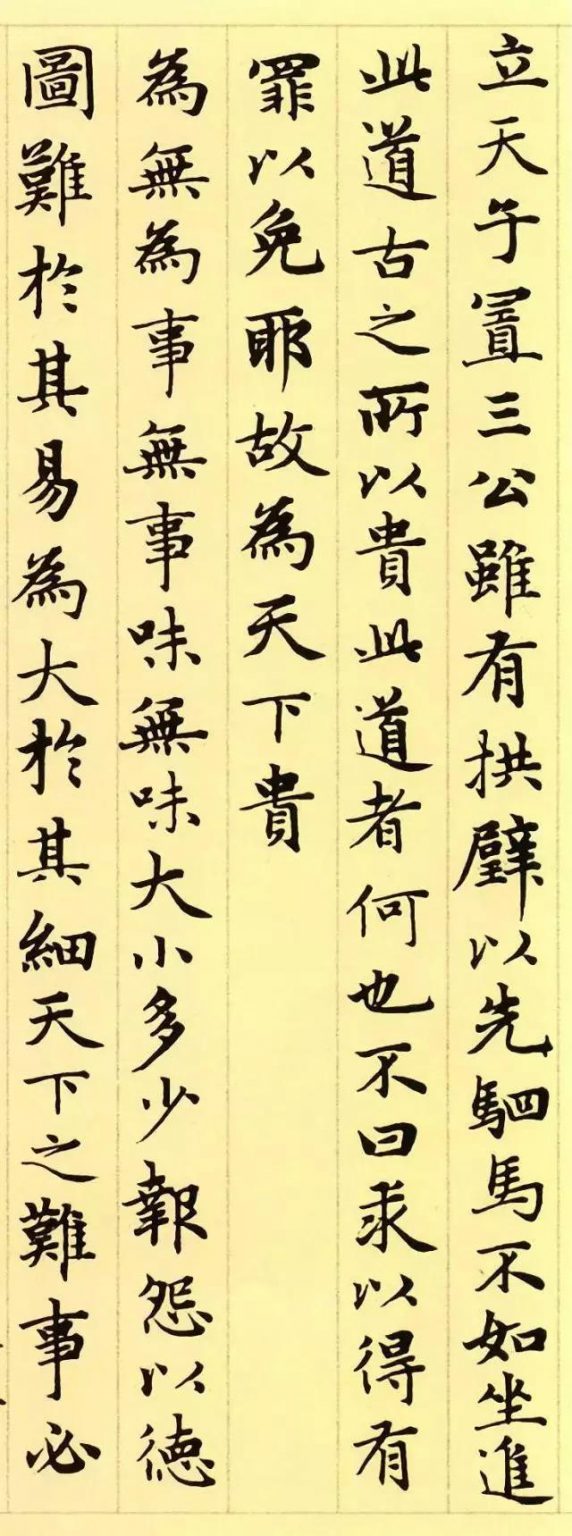 立天子置三公雖有拱璧以先駟馬不如坐進
此道古之所以貴此道者何也不曰求以得有
罪以免耶故為天下貴
為無為事無事味無味大小多少報怨以德
圖難於其易為大於其細天下之難事必